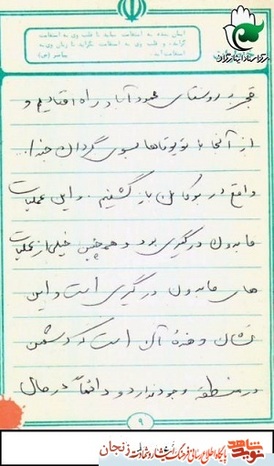 ایمان بنده به استقامت نیابد تا قلب وی به استقامت
گراید، و قلب وی به استقامت نگراید تا زبان وی به
استقامت آید.
قمچی و روستای محمودآباد راه افتادیم و
از آنجا با تویوتاها بسوی گردان جندا...
واقع در بوکان باز گشتیم. و این عملیات
ما بدون درگیری بود و همچنین خیلی از عملیات
های ما بدون درگیری است و این
نشان دهندهٔ آن است که دشمن
در منطقه وجود ندارد و دائماً در حال
۹
نوید شاهد
پایگاه اطلاع رسانی فرهنگ ایثار و شهادت
زنجان